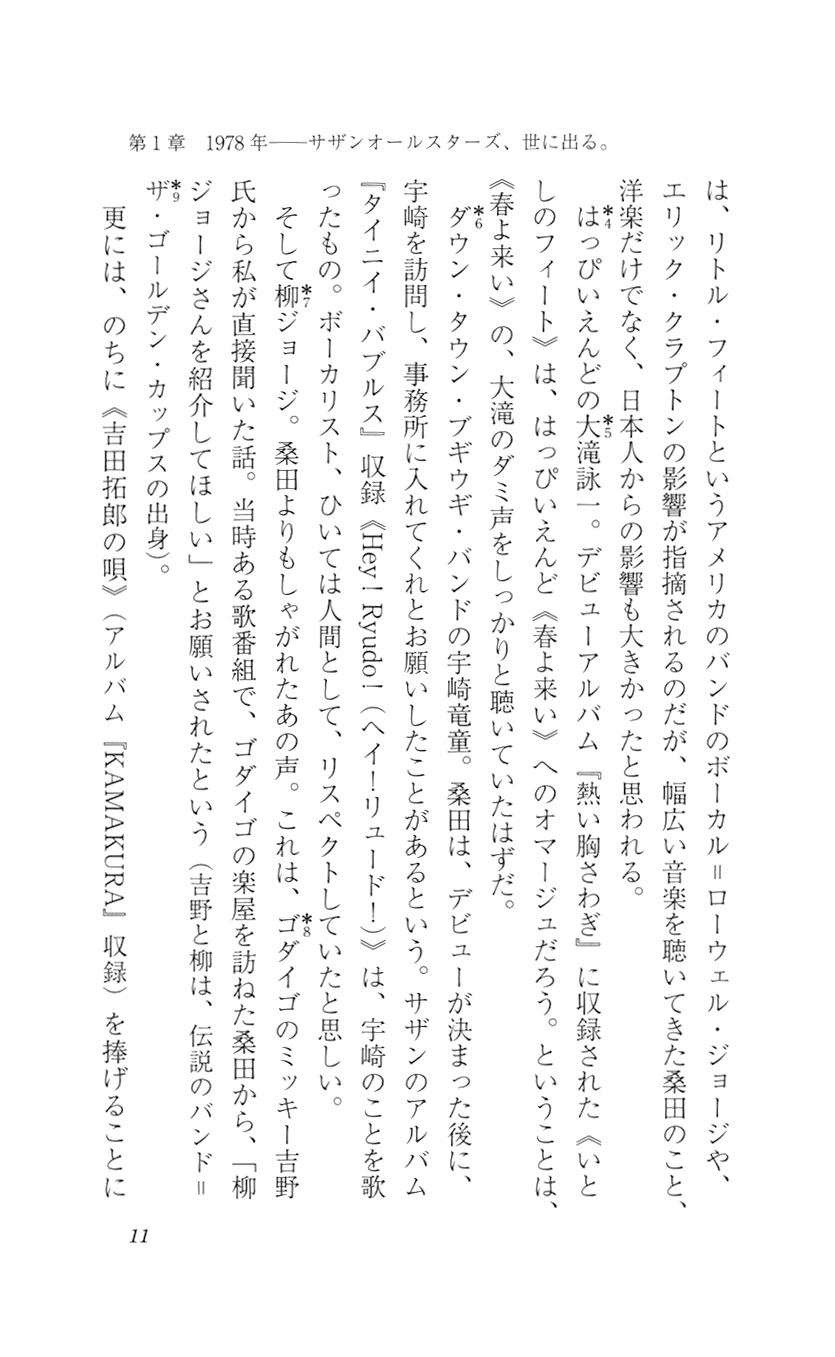 第1章　1978年――サザンオールスターズ、世に出る。
は、リトル・フィートというアメリカのバンドのボーカル＝ローウェル・ジョージや、
エリック・クラプトンの影響が指摘されるのだが、幅広い音楽を聴いてきた桑田のこと、
洋楽だけでなく、日本人からの影響も大きかったと思われる。
　はっぴいえんど*4の大滝詠一*5。デビューアルバム『熱い胸さわぎ』に収録された《いと
しのフィート》は、はっぴいえんど《春よ来い》へのオマージュだろう。ということは、
《春よ来い》の、大滝のダミ声をしっかりと聴いていたはずだ。
　ダウン・タウン・ブギウギ・バンド*6の宇崎竜童。桑田は、デビューが決まった後に、
宇崎を訪問し、事務所に入れてくれとお願いしたことがあるという。サザンのアルバム
『タイニイ・バブルス』収録《Hey! Ryudo!（ヘイ！リュード！）》は、宇崎のことを歌
ったもの。ボーカリスト、ひいては人間として、リスペクトしていたと思しい。
　そして柳ジョージ*7。桑田よりもしゃがれたあの声。これは、ゴダイゴ*8のミッキー吉野
氏から私が直接聞いた話。当時ある歌番組で、ゴダイゴの楽屋を訪ねた桑田から、「柳
ジョージさんを紹介してほしい」とお願いされたという（吉野と柳は、伝説のバンド＝
ザ・ゴールデン・カップス*9の出身）。
　更には、のちに《吉田拓郎の唄》（アルバム『KAMAKURA』収録）を捧げることに
11